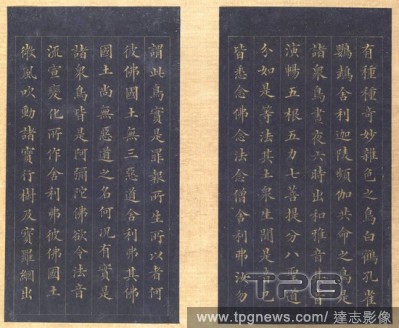 有種種奇妙雜色之鳥白鵠孔雀
鸚鵡舍利迦陵頻伽共命之鳥是
諸衆鳥晝夜六時出和雅音其音
演暢五根五力七菩提分八聖道
分如是等法其土衆生聞是音已
皆悉念佛念法念僧舍利弗汝勿
謂此鳥實是罪報所生所以者何
彼佛國土無三惡道舍利弗其佛
國土尚無惡道之名何況有實是
諸衆鳥皆是阿彌陀佛欲令法音
流宣變化所作舍利弗彼佛國土
微風吹動諸寶行樹及寶羅網出
TPG
www.tpgnews.com / 達志影像